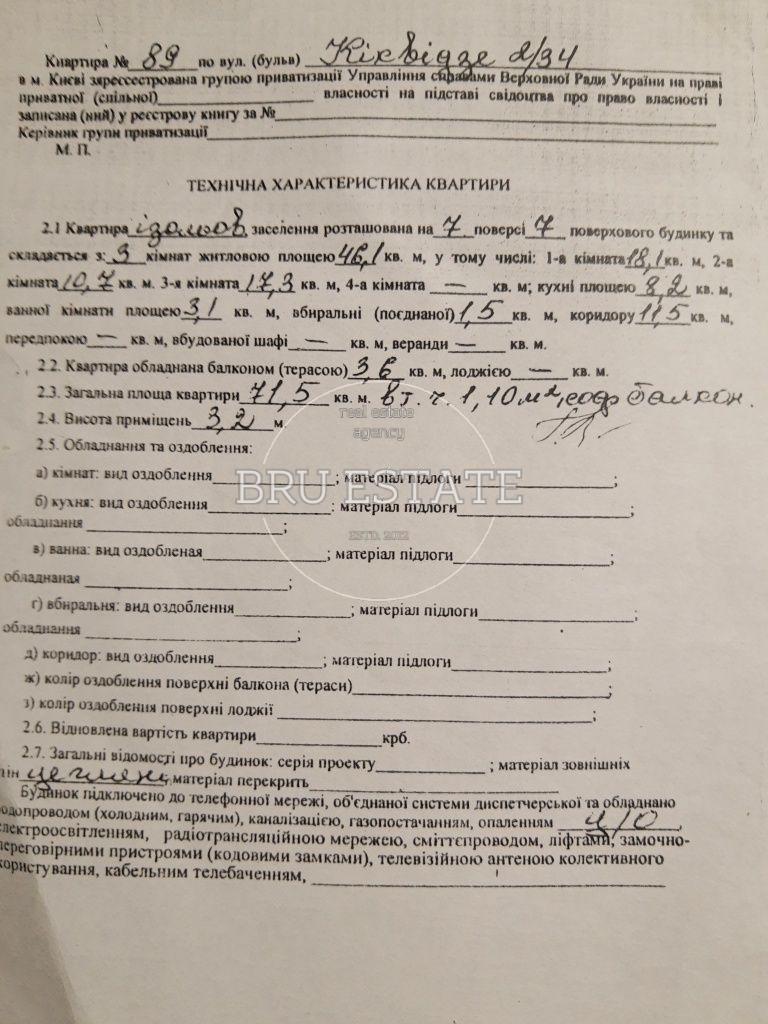 Квартира № 89 по вул. (бульв) Кіквідзе 2/34
в м. Києві зареєстрована групою приватизації Управління справами Верховної Ради України на праві
приватної (спільної)____ власності на підставі свідоцтва про право власності і
записана (ний) у реєстрову книгу за №____
Керівник групи приватизації____
М. П.
ТЕХНІЧНА ХАРАКТЕРИСТИКА КВАРТИРИ
2.1 Квартира ізольов. заселення розташована на 7 поверсі 7 поверхового будинку та
складається з: 3 кімнат житловою площею 46,1 кв. м, у тому числі: 1-а кімната 18,1 кв. м, 2-а
кімната 10,7 кв. м. 3-я кімната 17,3 кв. м, 4-а кімната — кв. м; кухні площею 8,2 кв. м,
ванної кімнати площею 3,1 кв. м, вбиральні (поєднаної) 1,5 кв. м, коридору 11,5 кв. м,
передпокою — кв. м, вбудованої шафі — кв. м, веранди — кв. м.
2.2. Квартира обладнана балконом (терасою) 3,6 кв. м, лоджією — кв. м.
2.3. Загальна площа квартири 71,5 кв. м. в т. ч. 1,10 м², балкон.
2.4. Висота приміщень 3,2 м.
real estate
agency
2.5. Обладнання та оздоблення:
а) кімнат: вид оздоблення____; матеріал підлоги____;
BRU ESTATE
б) кухня: вид оздоблення____: матеріал підлоги____;
обладнання ____;
ESTD. 2012
в) ванна: вид оздобленая____; матеріал підлоги____;
обладнаная ____;
г) вбиральня: вид оздоблення____; матеріал підлоги____;
обладнання ____;
д) коридор: вид оздоблення____; матеріал підлоги____;
ж) колір оздоблення поверхні балкона (тераси)____;
з) колір оздоблення поверхні лоджії ____;
2.6. Відновлена вартість квартири____крб.
2.7. Загальні відомості про будинок: серія проекту____; матеріал зовнішніх
тін цегляні, матеріал перекрить____
Будинок підключено до телефонної мережі, об'єднаної системи диспетчерської та обладнано
одопроводом (холодним, гарячим), каналізацією, газопостачанням, опаленням ц/о,
електроосвітленням, радіотрансляційною мережею, сміттєпроводом, ліфтами, замочно-
переговірними пристроями (кодовими замками), телевізійною антеною колективного
користування, кабельним телебаченням, ____